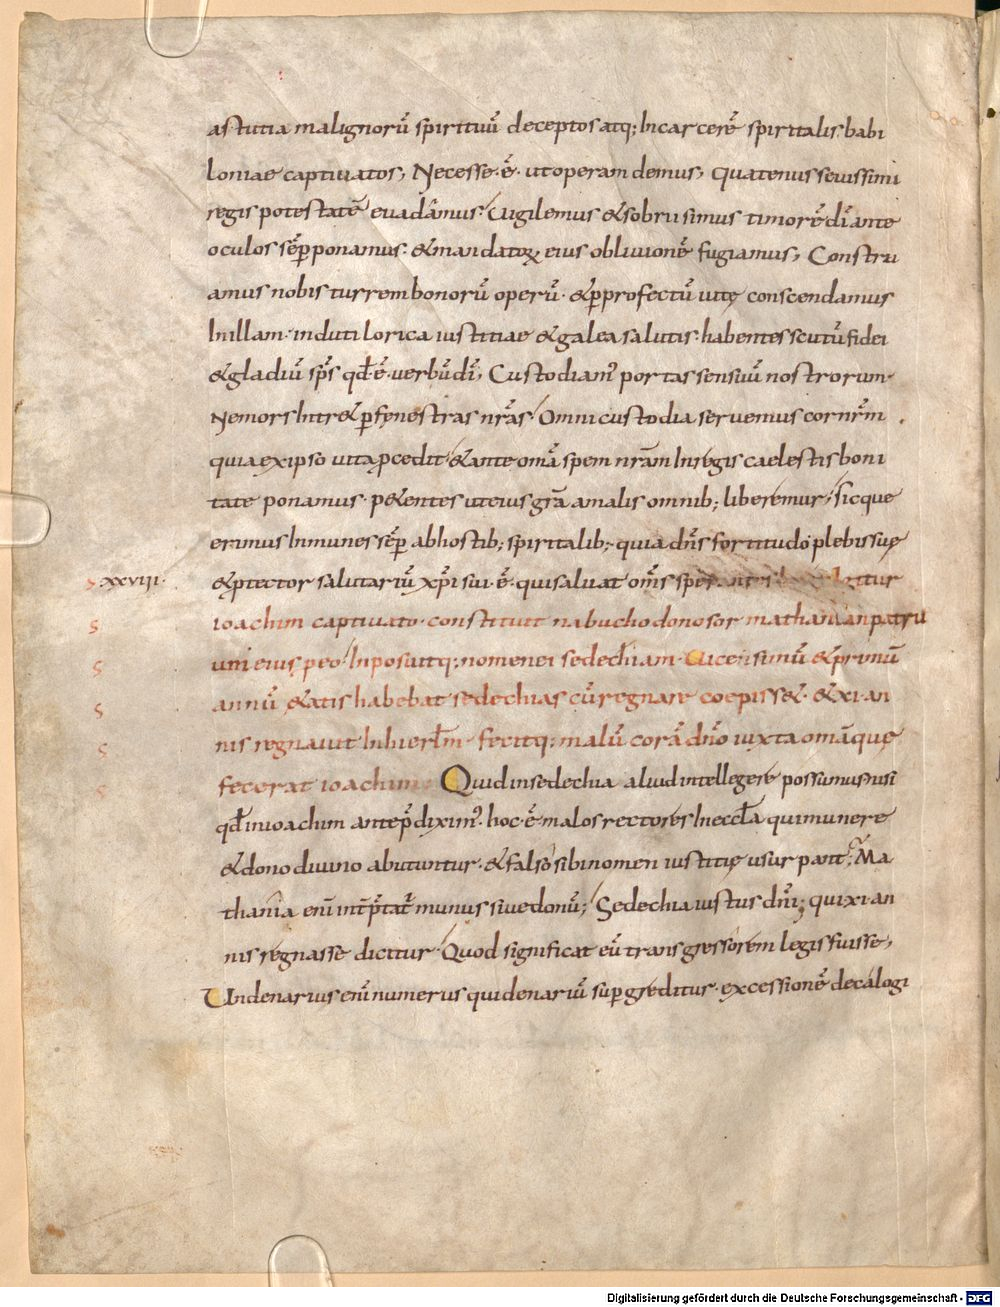 astutia malignorū spirituū deceptos atq; In carcerē spiritalis babi
loniae captiuatos, Necesse ·ē· ut operam demus, quatenus seuissimi
regis potestatē euadamus. Uigilemus & sobrii simus timorē dī ante
oculos sēp ponamus · & mandatoꝝ eius obliuionē fugiamus, Constru
amus nobis turrem bonorū operū · & p profectū uitę conscendamus
In illam · induti lorica iustitiae & galea salutis · habentes scutū fidei
& gladiū sps̄ qđ ē uerbū dī, Custodiam' portas sensuū nostrorum·
Ne mors Intr& p fenestras nr̄as. Omni custodia seruemus cor nr̄m
quia ex ipso uita ꝓcedit · & ante omā spem nr̄am In regis caelestis boni
tate ponamus · p&entes ut eius grā a malis omnib; liberemur, sicque
erimus Inmunes sēp ab hostib; spiritalib; · quia dn̄s fortitudo plebis suę
xxviii·
& ꝓtector salutariū xp̄i sui ·ē· qui saluat om̄s sperantes igitur
ioachim captiuato · constituit nabuchodonosor mathanian patru
um eius p eo. Inposuitq; nomen ei sedechiam · Uicensimū & primū
annū &atis habebat sedechias cū regnare coepiss& · & xi · an
nis regnauit In hierłm · fecitq; malū corā dn̄o iuxta omā quę
fecerat ioachim· Quid in sedechia aliud intellegere possumus nisi
qđ in ioachim ante p̄dixim' · hoc ·ē· malos rectores In eccła qui munere
& dono diuino abutuntur · & falso sibi nomen iustitię usurpant; Ma
thania enī int̄p̄tat̄ munus siue donū; Sedechia iustus dn̄i; qui xi · an
nis regnasse dicitur · Quod significat eū transgressorem legis fuisse,
Undenarius enī numerus qui denariū supgreditur · excessionē decalogi